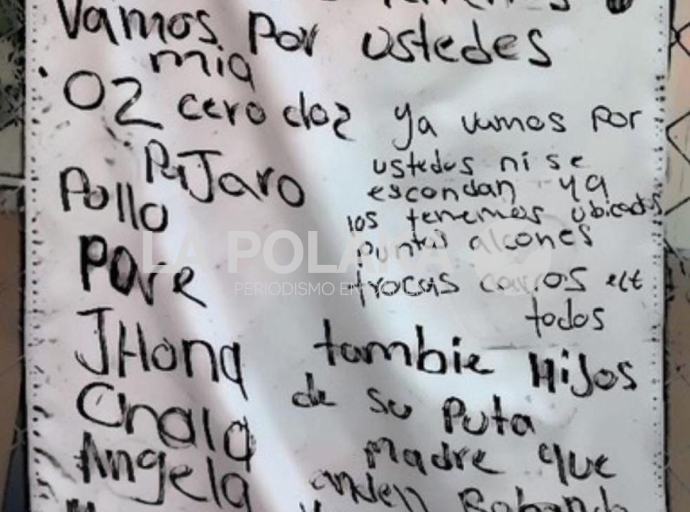 Vamos por ustedes
mia
02 cero doz ya vamos por
PaJaro ustedes ni se
Pollo escondan ya
los tenemos ubicados
puntos alcones
LA POLA
PERIODISMO EN
trocas carros ect
todos
JHona tambie HiJos
Chala de su Puta
madre que
Angela anden Robando